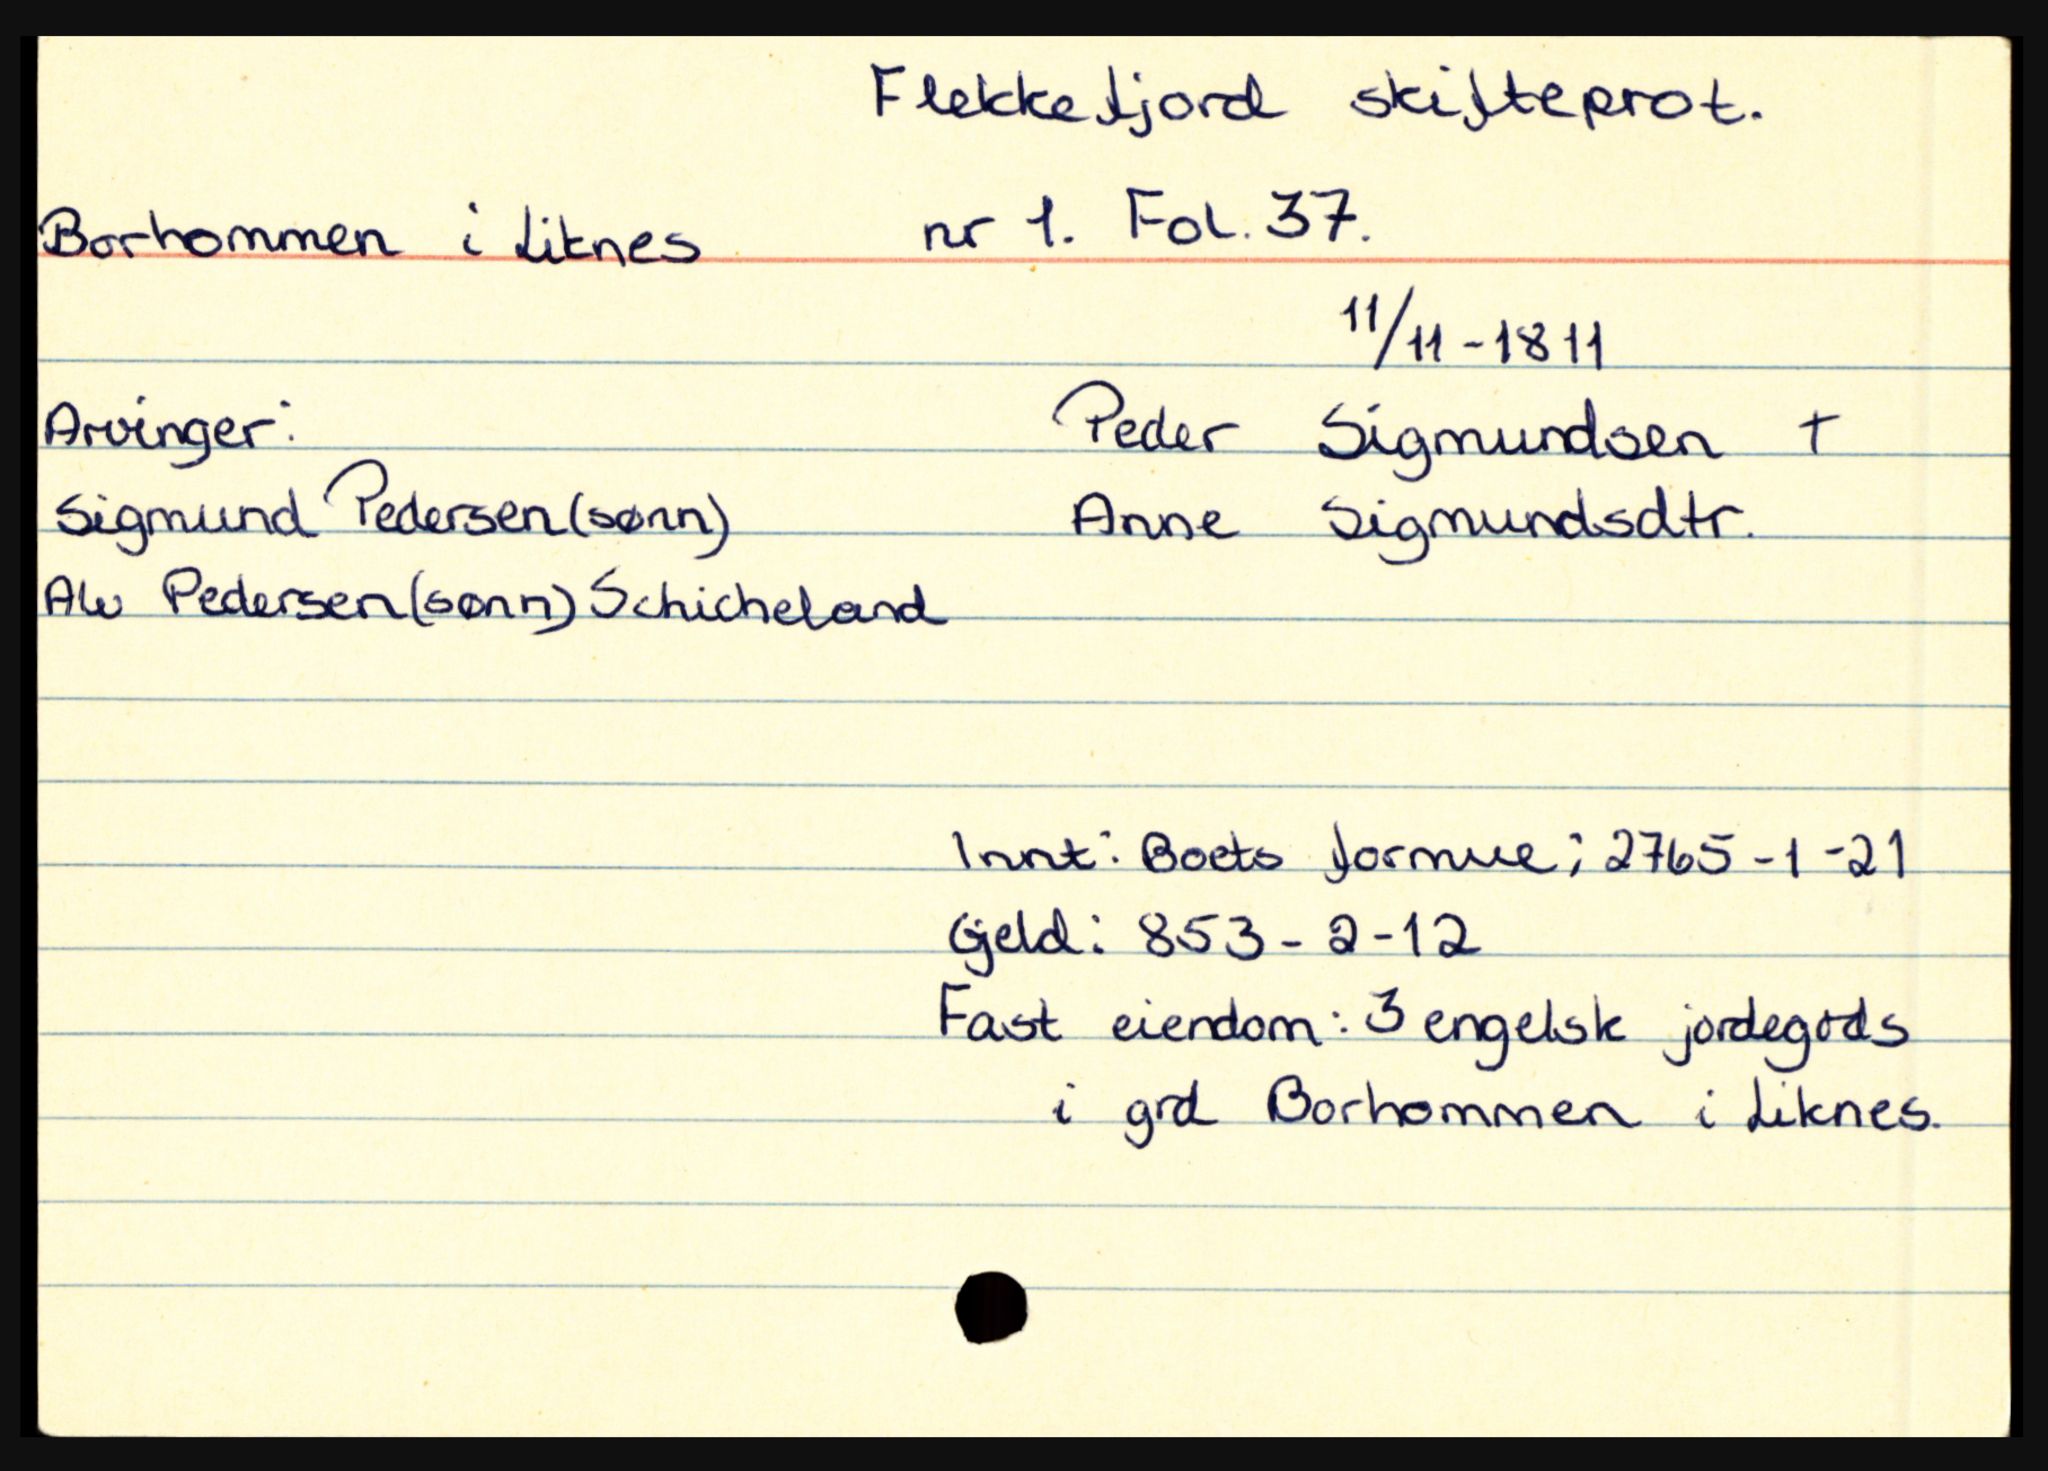 Flekkefjord skifteprot.
Borhommen i Liknes nr 1. Fol. 37.
11/11-1811
Arvinger: Peder Sigmundsen +
Sigmund Pedersen (sønn) Anne Sigmundsdtr.
Alv Pedersen (sønn) Schicheland
Innt: Boets formue; 2765-1-21
Gjeld: 853-2-12
Fast eiendom: 3 engelsk jordegods
i grd Borhommen i Liknes.